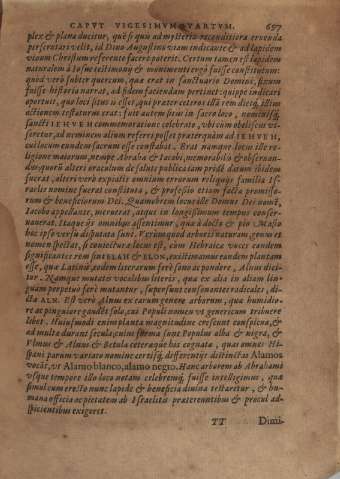 CAPVT VIGESIMVMQVARTVM. 697
plex & plana ducitur, què si quis ad mysteria reconditiora eruenda
perscrutari velit, id Diuo Augustino viam indicante & ad lapidem
viuum Christum referente facerè poterit. Certum tamen est lapidem
naturalem à
testimonij & monimenti ergò fuisse constitutum:
quod verò subter quercum, quæ erat in sanctuario Domini, situm
fuisse historia narrat, ad fidem faciendam pertinet: quippe indicari
oportuit, quo loci situs is esset, qui præter ceteros illā rem dictā, istam
actionem testaturus erat: fuit autem situs in sacro loco, nominisq́;
sancti IEHVEH commemoratione celebrato, vbi cum obeliscus vi-
seretur, ad neminem alium referri posset præterquàm ad IEHVEH,
cui locum eundem sacrum esse constabat. Erat namque locus ille re-
ligione maiorum, nempe Abrahæ & Iacobi, memorabilis & obseruan-
dus: quorū alteri oraculum de solis publicatam prodē datum ibidem
fuerat, alteri verò expiatis omnium errorum reliquijs familia Is-
raelis nomine fuerat constituta, & professio etiam facta promisso-
rum & beneficiorum Dei. Quamobrem locus ille Domus Dei nomē,
Iacobo appellante, meruerat, atque in longissimum tempus conser-
uauerat. Itaque ijs omnibus assentimur, quæ à docto & pio Masio
hoc ipso versu disputata sunt. Verùm quod arboris naturam, genus et
nomen spectat, si coniecturæ locus est, cùm Hebraicæ voces eandem
significantes rem sint ELAH & ELON, existimamus eandem plantam
esse, quæ Latinis, eædem literarum ferè sono ac pondere, Alnus dici-
tur. Namque mutatis vocalibus literis, quæ ex alia in aliam lin-
guam perpetuò ferè mutantur, supersunt consonantes radicales, di-
cta ALN. Est verò Alnus ex earum genere arborum, quæ humidio-
re ac pinguiore gaudēt solo, cui Populi nomen vt genericum tribuere
libet. Huiusmodi enim planta magnitudine crescunt conspicua, &
ad multa durant secula; cuius formæ sunt Populus alba & nigra, &
Vlmus & Alnus & Betula ceteræque his cognatæ, quas omnes Hi-
spani parum variato nomine certisq́; differentijs distinctas Alamos
vocāt, vt Alamo blanco, alamo negro. Hanc arborem ab Abrahami
vsque tempore illo loco notam celebremq́; fuisse intelligimus, quæ
simul cum erecto nunc lapide & beneficia diuina testaretur, & hu-
mana officia ac pietatem ab Israelitis prætereuntibus & procul ad-
spicientibus exigeret.
TT Dimi-